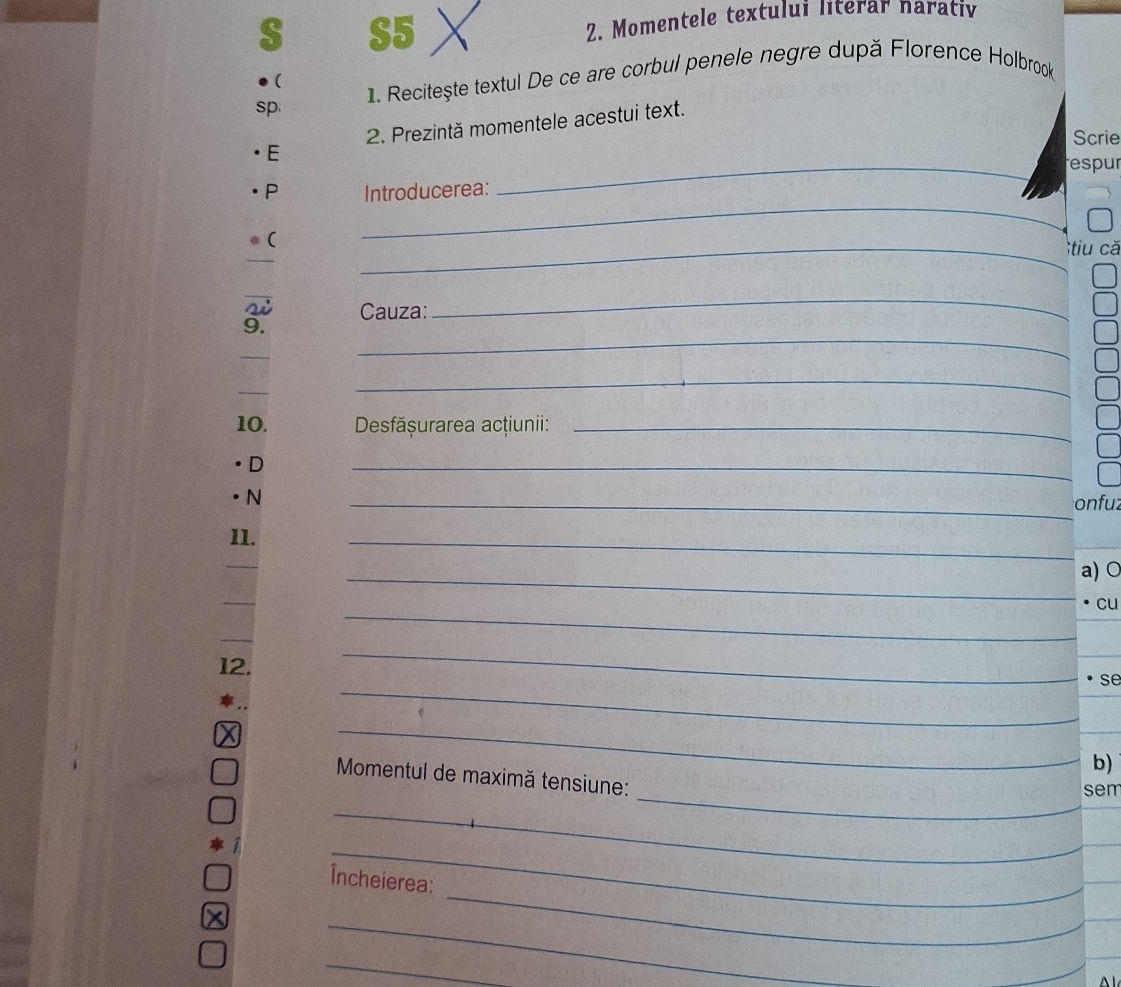 S
S5
2. Momentele textului literar narativ
1. Recitește textul De ce are corbul penele negre după Florence Holbrook
2. Prezintă momentele acestui text.
Introducerea:
Cauza:
Desfășurarea acțiunii:
Momentul de maximă tensiune:
Încheierea:
sp
• E
• P
și
9.
10.
• D
• N
11.
12.
Scrie
tiu că
a) O
• cu
• se
b)
sem